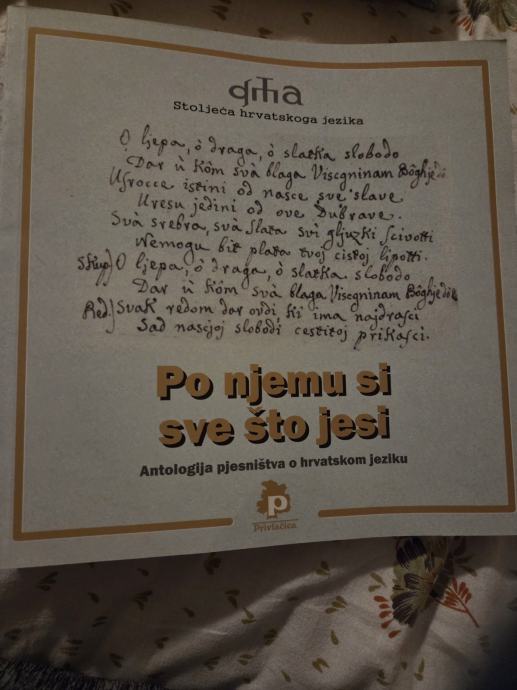 gma
Stoljeća hrvatskoga jezika
O ljepa, ò draga, ò slatka slobodo
Dar ù kôm svà blaga Viscgninam Bôghje dô
Usrocce istini od nasce sve slave
Uresu jedini od ove Dubrave.
Svà srebra, svà slata svi gljuzki scivotti
Nemogu bit plata tvoj cistoj lipotti.
Skup) O ljepa, ò draga, ò slatka slobodo
Dar ù kôm svà blaga Viscgninam Bôghje dô
Red.) Svak redom dar ovdi, ki ima najdrasci
Sad nascjoj slobodi cestitoj prikasci.
Po njemu si
sve što jesi
Antologija pjesništva o hrvatskom jeziku
P
Privlačica